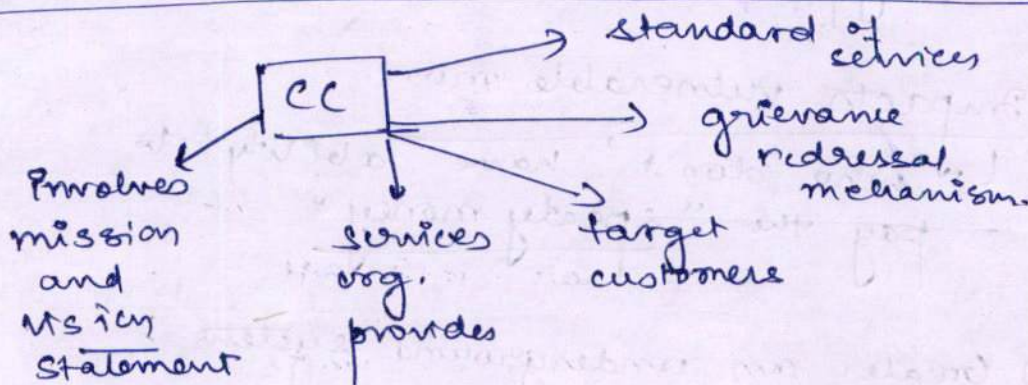 CC
standard of
services
grievance
redressal
mechanism.
target
customers
services
org.
provides
Involves
mission
and
vision
statement